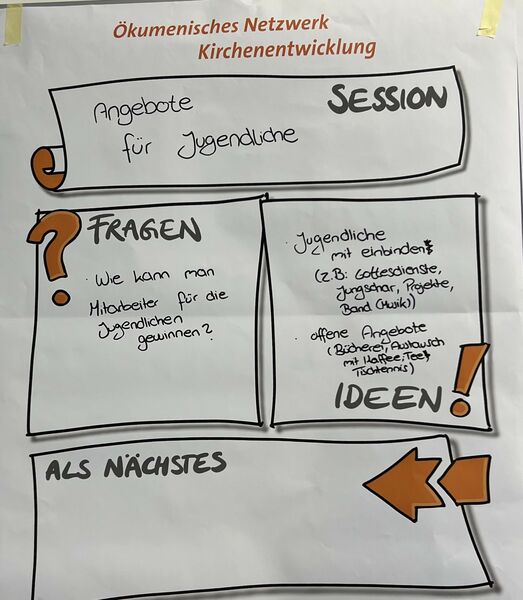 Ökumenisches Netzwerk
Kirchenentwicklung
SESSION
Angebote
für Jugendliche
?
FRAGEN
· Wie kann man
Mitarbeiter für die
Jugendlichen
gewinnen?
· Jugendliche
mit einbinden
(z.B: Gottesdienste,
Jungschar, Projekte,
Band (Musik))
· offene Angebote
(Bücherei, Austausch
mit Kaffee, Tee,
Tischtennis)
IDEEN
!
ALS NÄCHSTES